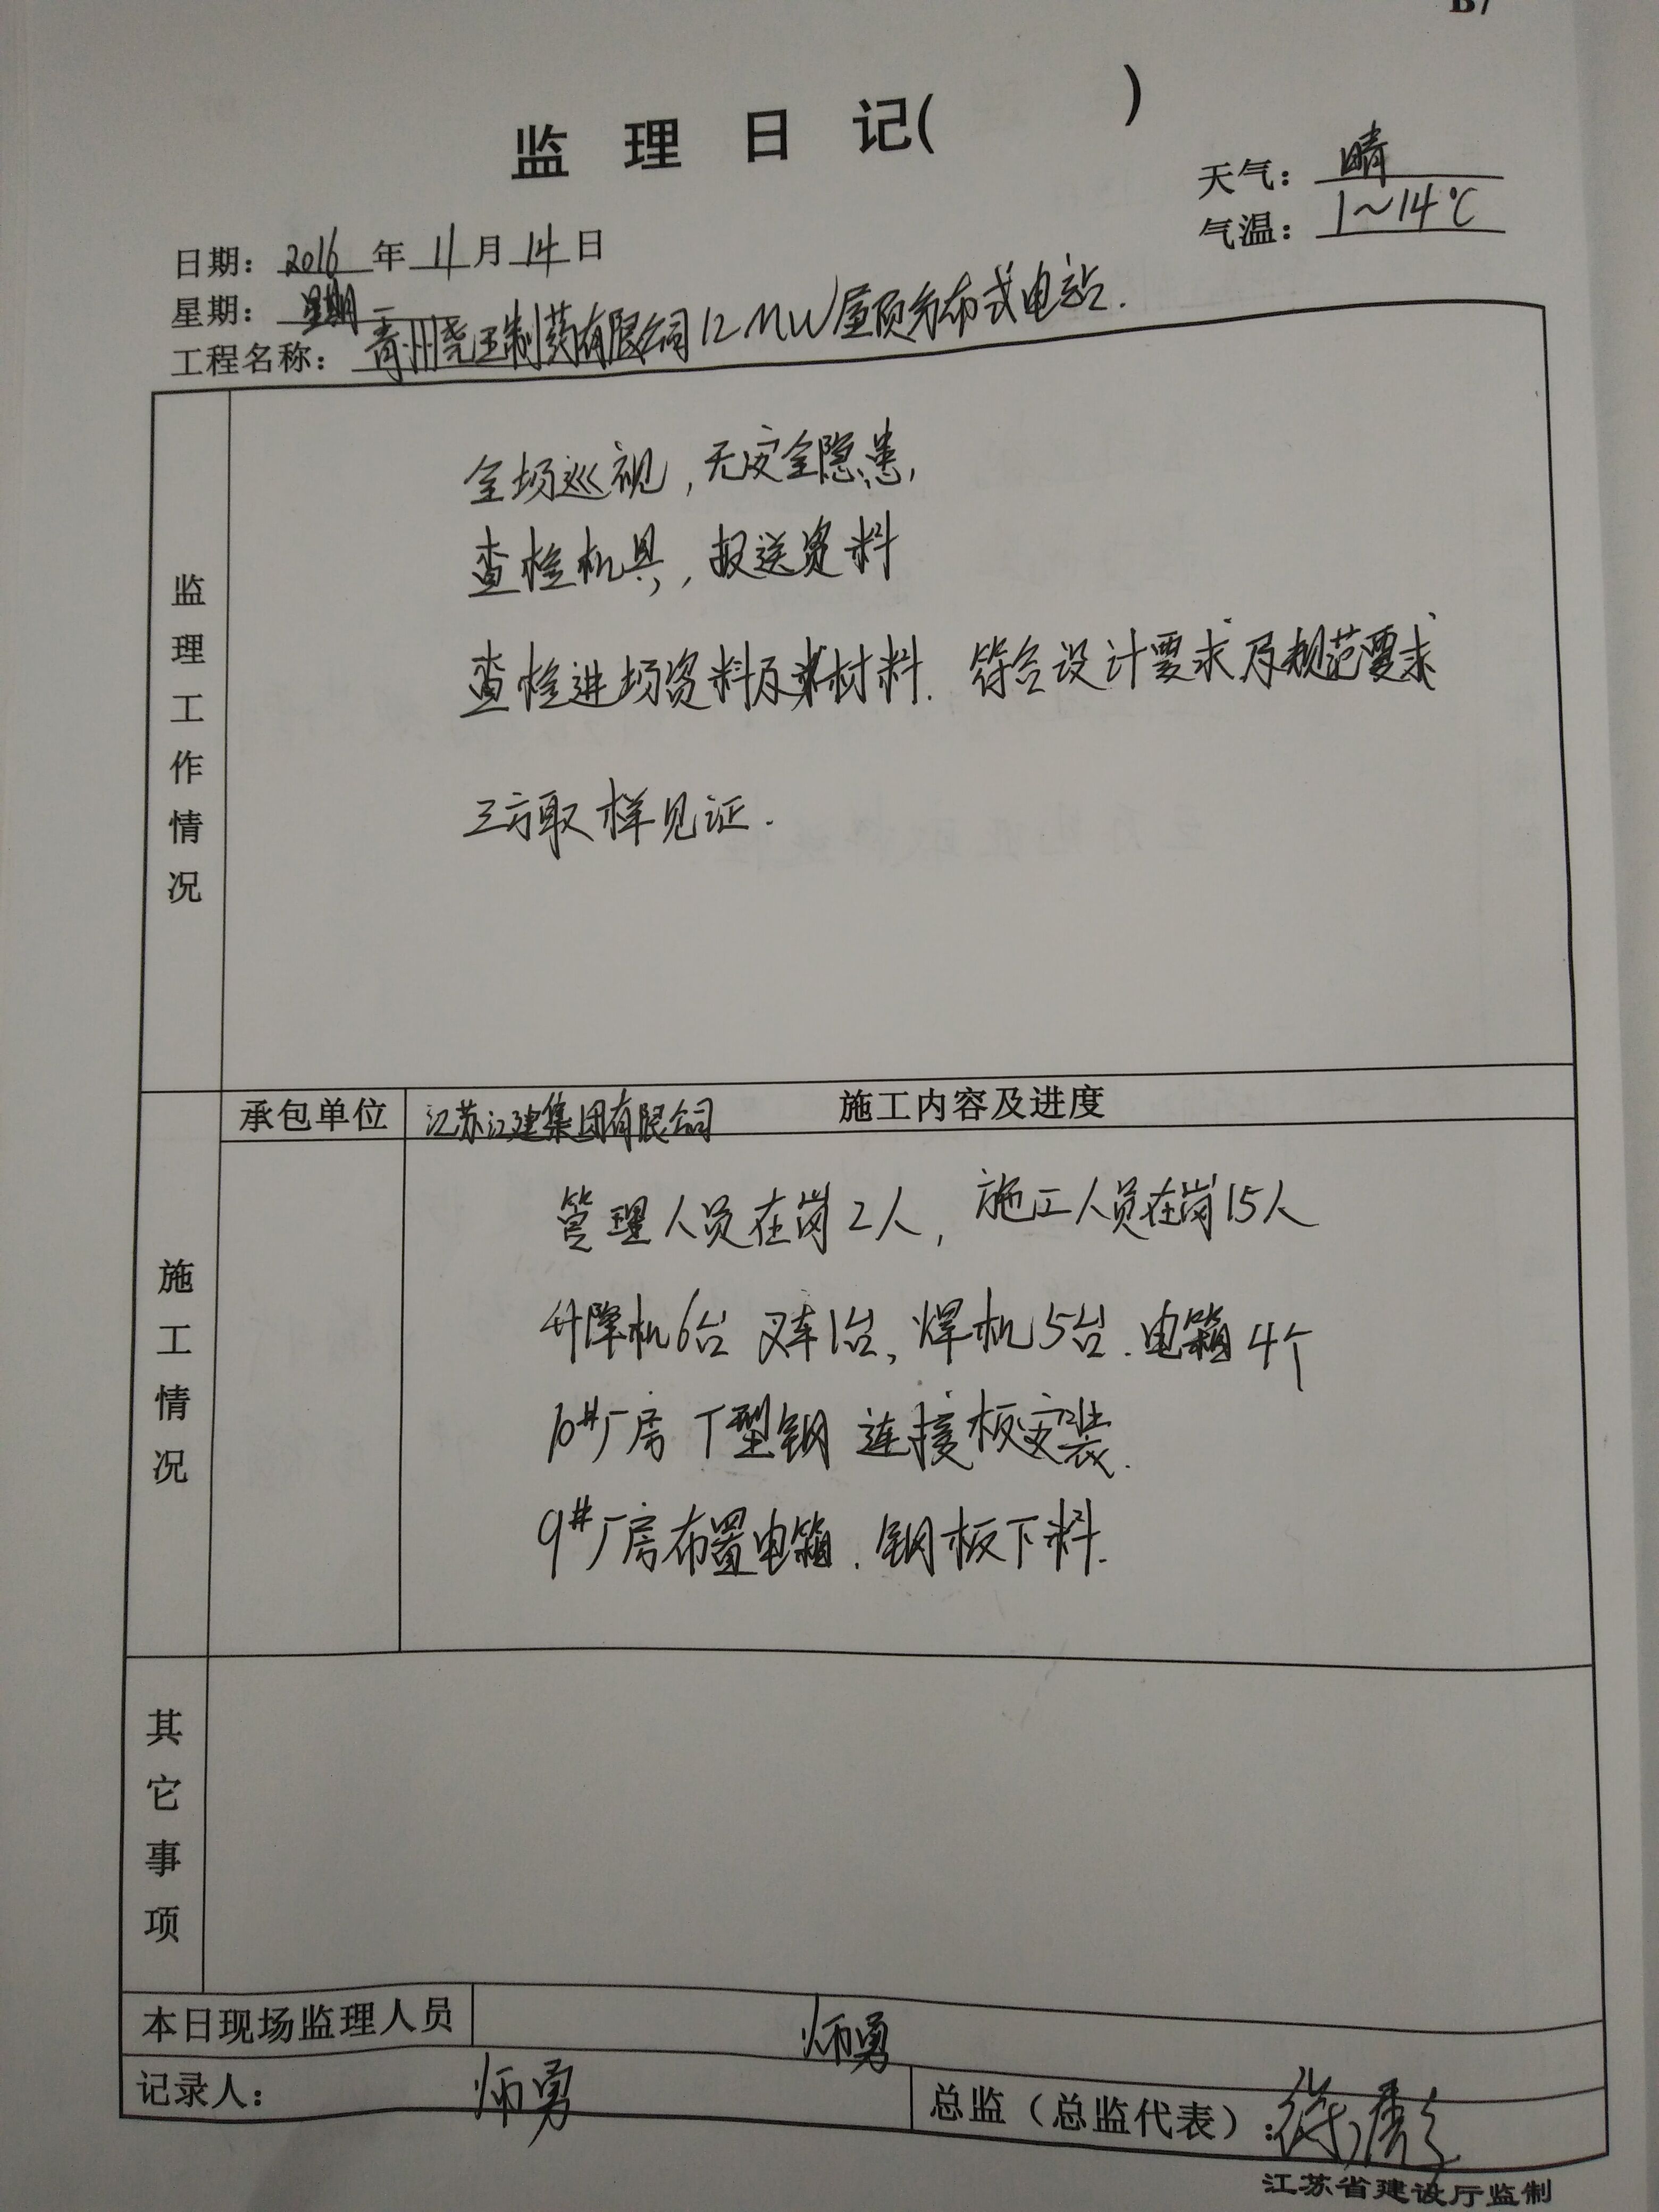 B7
监理日记( )
天气：晴
气温：1~14℃
日期：2016年11月14日
星期：星期一
工程名称：青州尧王制药有限公司12MW屋顶分布式电站.
监理工作情况
全场巡视，无安全隐患，
查检机具，报送资料
查检进场资料及材料. 符合设计要求及规范要求
三方取样见证.
施工情况
承包单位 江苏江建集团有限公司 施工内容及进度
管理人员在岗2人，施工人员在岗15人
升降机6台 叉车1台、焊机5台.电箱4个
10#厂房 T型钢 连接板安装.
9#厂房布置电箱.钢板下料.
其它事项
本日现场监理人员 师勇
记录人： 师勇 总监（总监代表）：
江苏省建设厅监制